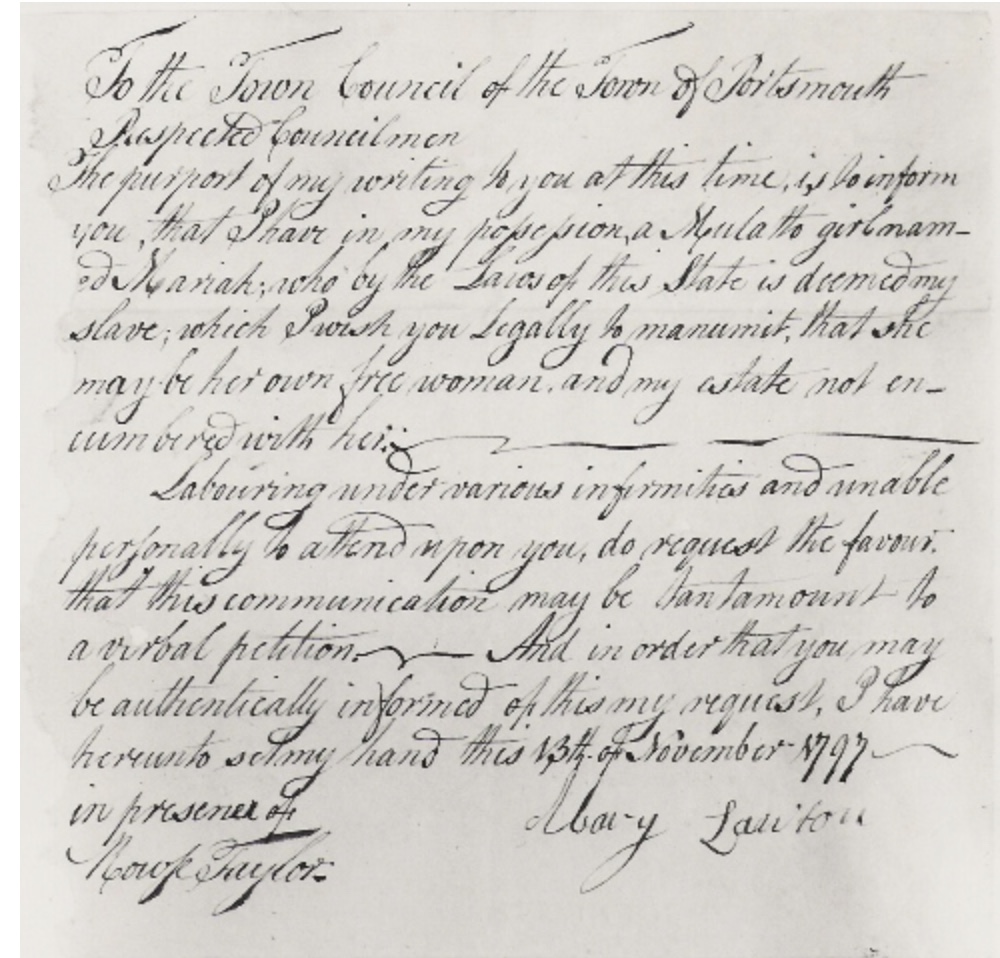 To the Town Council of the Town of Portsmouth
Respected Councilmen
The purport of my writing to you at this time, is to inform
you, that I have in my poſseſsion, a Mulatto girl nam-
ed Mariah; who by the Laws of this State is deemed my
slave; which I wish you Legally to manumit, that she
may be her own free woman, and my estate not en-
cumbered with her:
Labouring under various infirmities and unable
perſonally to attend upon you, do request the favour,
that this communication may be tantamount to
a verbal petition. And in order that you may
be authentically informed of this my request, I have
hereunto set my hand this 13th. of November 1797
in presence of Mary Lawton
Taylor